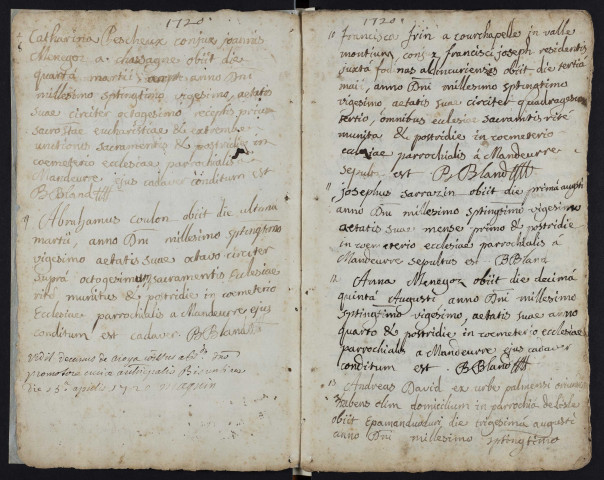 1720
Catharina Pescheux conjux Joannis
Menegoz a chassagne obiit die
quarta martii anno Dni
millesimo sptingtimo vigesimo, aetatis
suae circiter octogesimo receptis prius
sacrostae eucharistiae & extremae
unctionis sacramentis & postridie in
coemeterio ecclesiae parrochialis
Mandeurre ejus cadaver conditum est
B Bland
9 Abrahamus coulon obiit die ultima
martii, anno Dni millesimo sptingtimo
vigesimo aetatis suae octavo circiter
supra octogesimum, sacramentis Ecclesiae
rite munitus & postridie in coemeterio
Ecclesiae parrochialis a Mandeurre ejus
conditum est cadaver B Bland
promotore curiae
die 15a aprilis 1720
1720
10 francisca frin a courchapelle in valle
montium, conjx francisci joseph residentis
juxta fodinas obiit, die tertia
maii, anno Dni millesimo sptingtimo
vigesimo, aetatis suae circiter quadragesimo
tertio, omnibus ecclesiae sacramtis rité
munita & postridie in coemeterio
ecclesiae parrochialis á Mandeurre
sepulta est B Bland
11 josephus sarrazin obiit die primá augusti
anno Dni millesimo sptingtimo vigesimo
aetatis suae mense primo & postridie
in coemeterio ecclesiae parrochialis á
Mandeurre sepultus est B Bland
12 Anna Menegoz obiit die decimá
quintá Augusti anno Dni millesimo
sptingtimo vigesimo, aetatis suae anno
quarto & postridie in coemeterio ecclesiae
parrochialis á Mandeurre ejus cadaver
conditum est B Bland
13 Andreas David ex urbe
habens olim domicilium in parrochiá de Lisle
obiit Epamanduoduri die trigesimá augusti
anno Dni millesimo sptingtimo